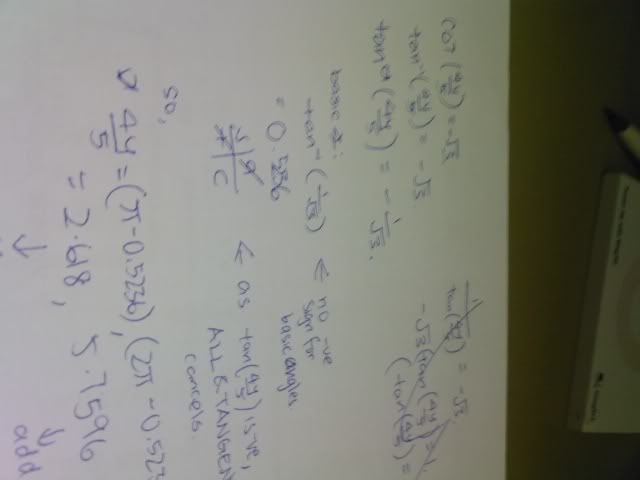 cot (4y/5) = -√3
tan⁻¹ (4y/5) = -√3.
tan (4y/5) = -1/√3.
basic ∠:
tan⁻¹ (1/√3) ← no -ve sign for basic angles
= 0.5236
← as tan(4y/5) is -ve,
ALL & TANGEN
cancels.
C
so,
4y/5 = (π - 0.5236), (2π - 0.523
= 2.618, 5.7596
↓ ↓
add
1/tan(4y/5) = -√3
-√3 (tan (4y/5)) = 1.
(tan(4y/5)) =